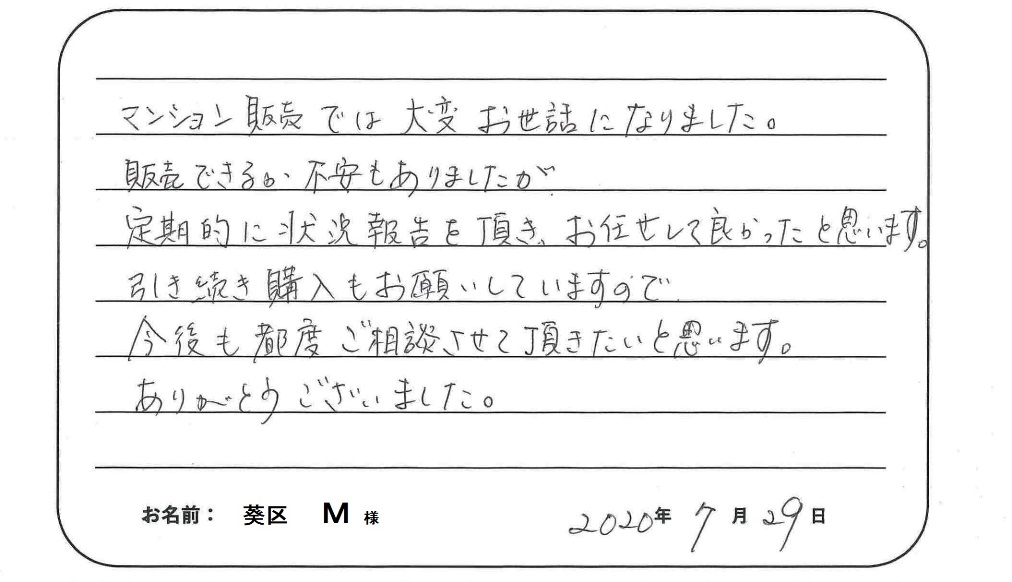 マンション販売では大変お世話になりました。
販売できるか不安もありましたが
定期的に状況報告を頂き、お任せして良かったと思います。
引き続き購入もお願いしていますので
今後も都度ご相談させて頂きたいと思います。
ありがとうございました。
お名前： 葵区 M 様 2020年 7月 29日